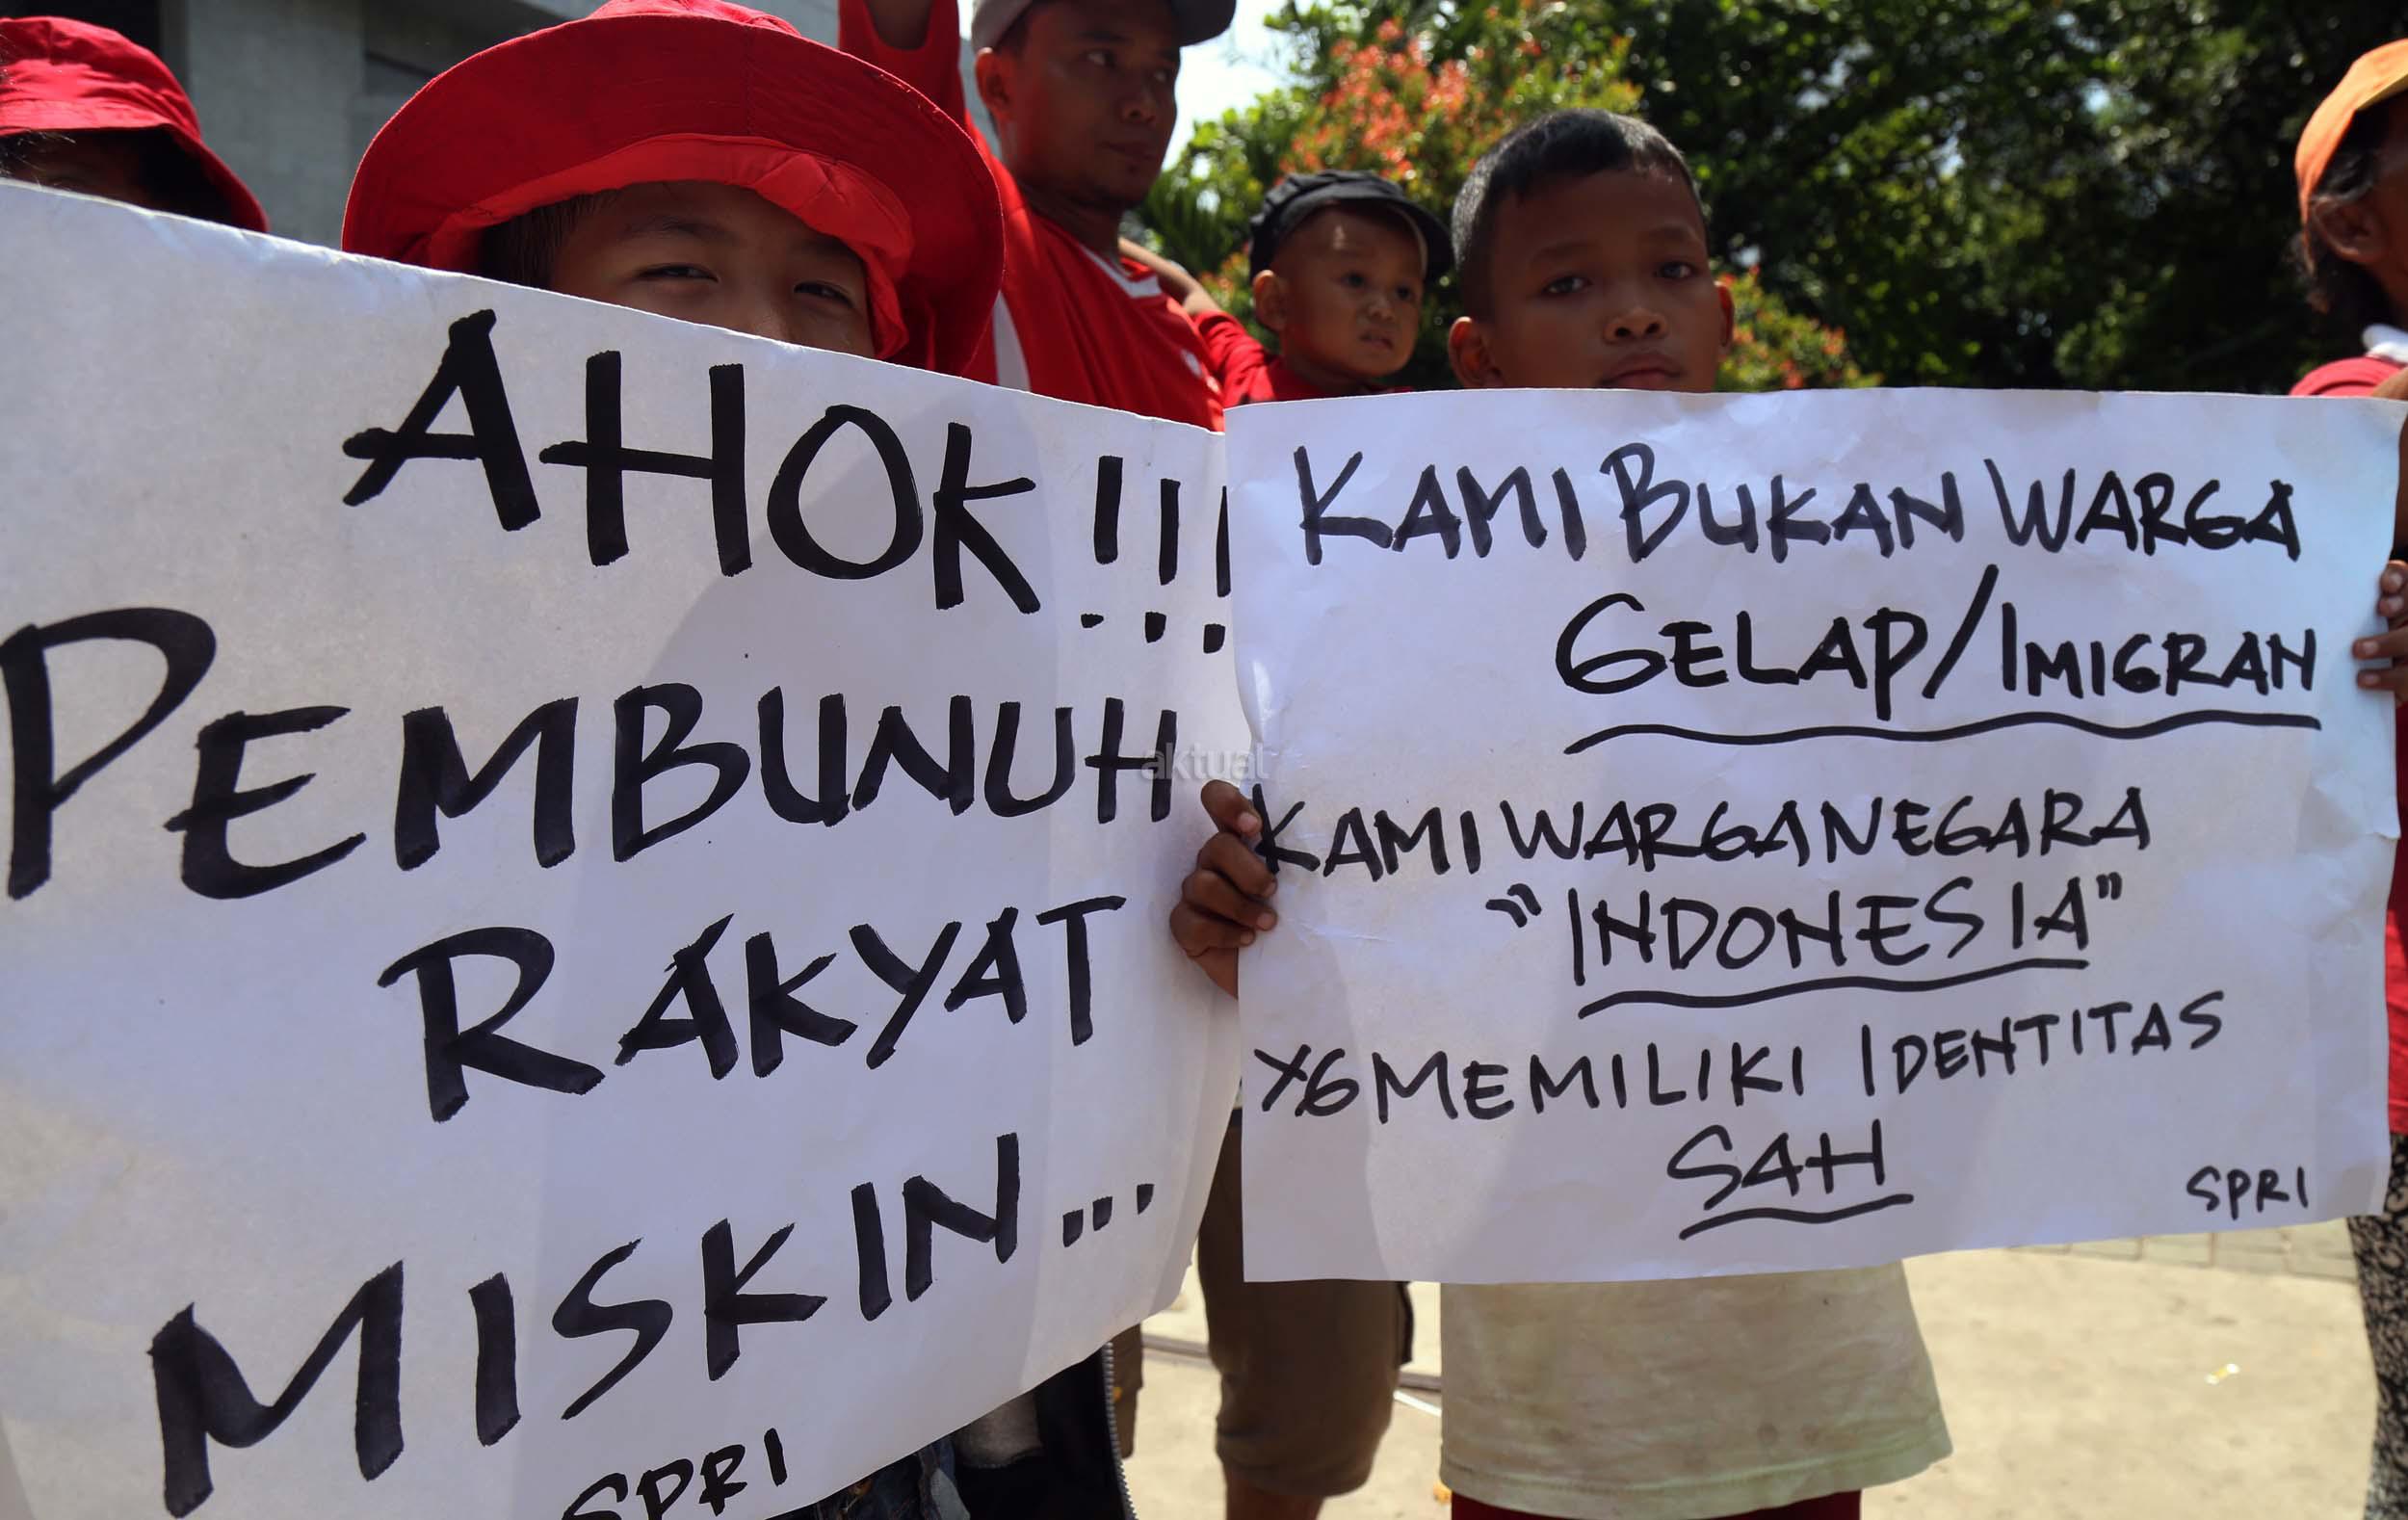 AHOK!!!
PEMBUNUH
RAKYAT
MISKIN...
SPRI
KAMI BUKAN WARGA
GELAP/IMIGRAN
KAMI WARGANEGARA
"INDONESIA"
YG MEMILIKI IDENTITAS
SAH
SPRI
aktual